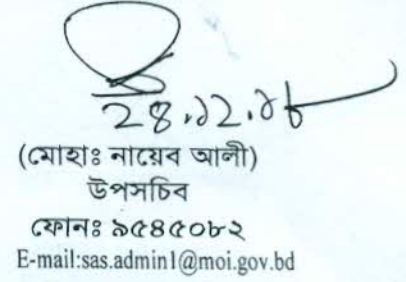 (মোহাঃ নায়েব আলী)
উপসচিব
ফোনঃ ৯৫৪৫০৮২
E-mail:sas.admin1@moi.gov.bd